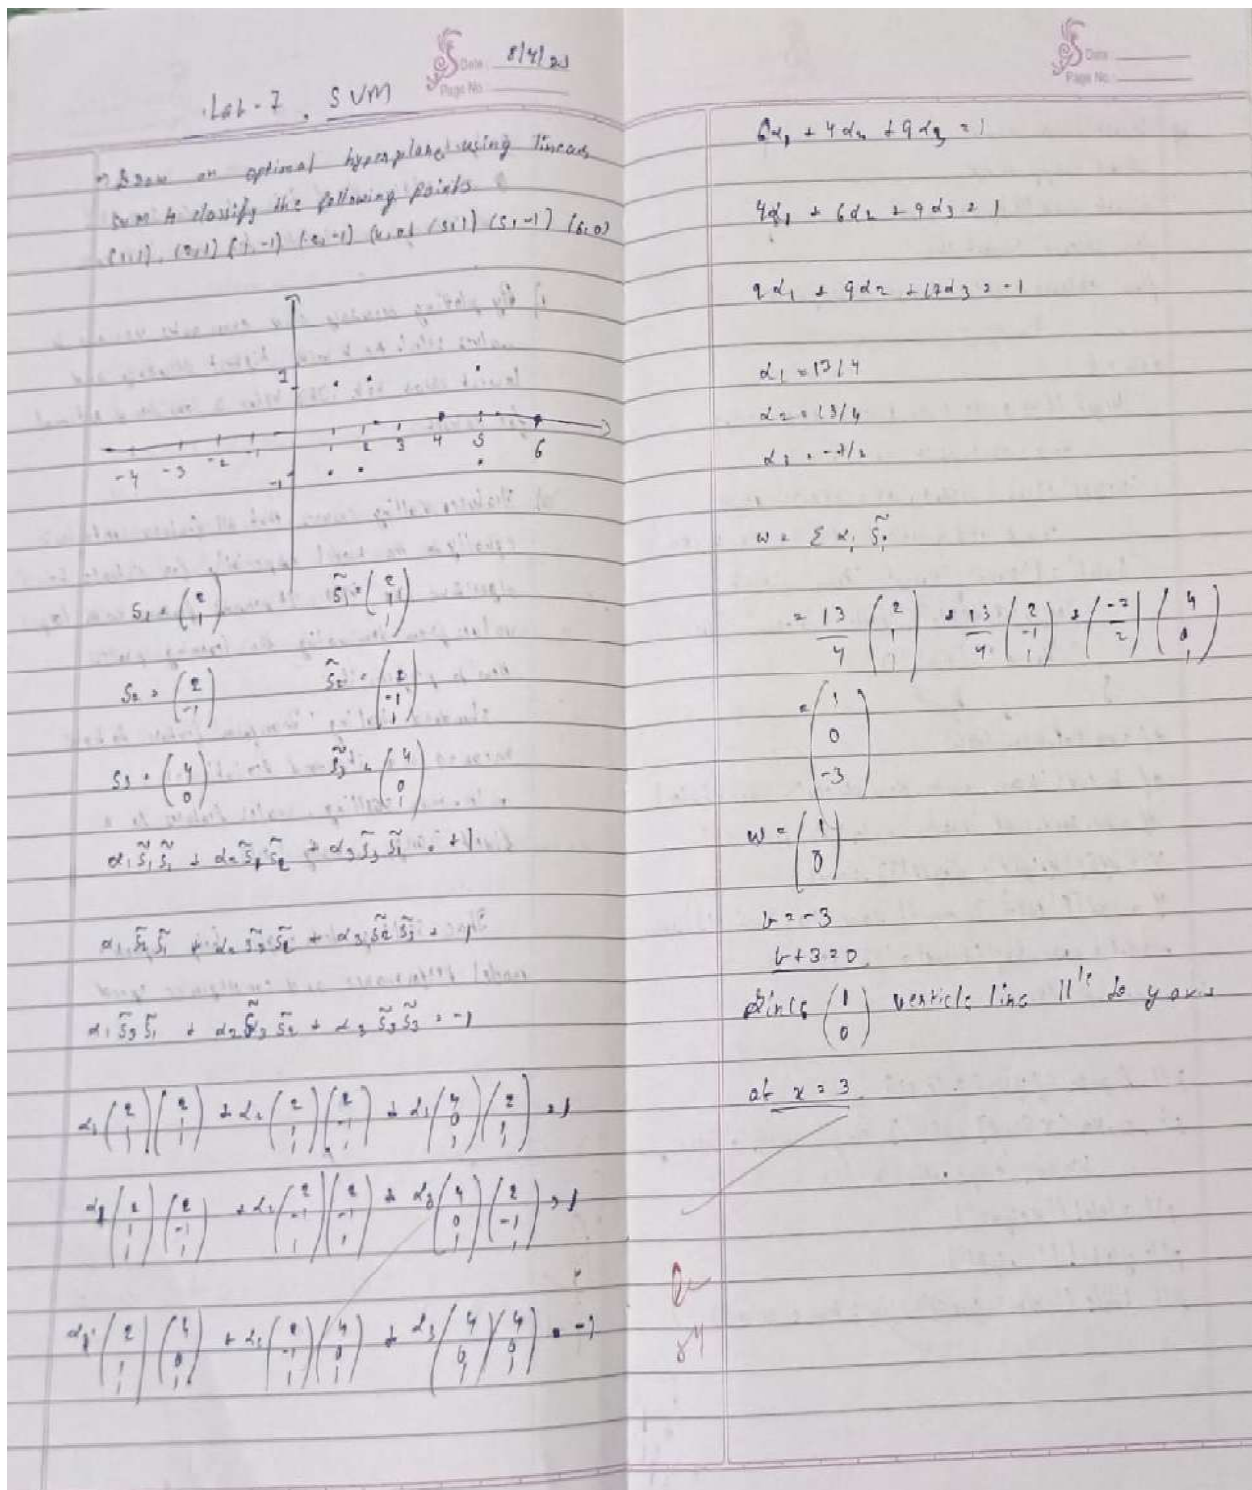 Date 8/4/25
Page No
Lab-7. SVM
→ Draw an optimal hyperplane using linear
SVM to classify the following points
(1,1), (2,1) (1,-1) (2,-1) (4,0) (5,1) (5,-1) (6,0)
1
-4 -3 -2 -1 1 2 3 4 5 6
-1
S1 = (2 1) S̃1 = (2 1 1)
S2 = (2 -1) S̃2 = (2 -1 1)
S3 = (4 0) S̃3 = (4 0 1)
α1 S̃1 S̃1 + α2 S̃1 S̃2 + α3 S̃3 S̃1 = +1
α1 S̃2 S̃1 + α2 S̃2 S̃2 + α3 S̃2 S̃3 = 1
α1 S̃3 S̃1 + α2 S̃3 S̃2 + α3 S̃3 S̃3 = -1
α1 (2 1 1) (2 1 1) + α2 (2 1 1) (2 -1 1) + α3 (4 0 1) (2 1 1) = 1
α1 (2 1 1) (2 -1 1) + α2 (2 -1 1) (2 -1 1) + α3 (4 0 1) (2 -1 1) = 1
α1 (2 1 1) (4 0 1) + α2 (2 -1 1) (4 0 1) + α3 (4 0 1) (4 0 1) = -1
Date
Page No
6α1 + 4α2 + 9α3 = 1
4α1 + 6α2 + 9α3 = 1
9α1 + 9α2 + 17α3 = -1
α1 = 13/4
α2 = 13/4
α3 = -7/2
w = Σ αi S̃i
= 13/4 (2 1 1) + 13/4 (2 -1 1) + (-7/2) (4 0 1)
= (1 0 -3)
w = (1 0)
b = -3
b+3=0
Since (1 0) verticle line ||le to y axis
at x = 3